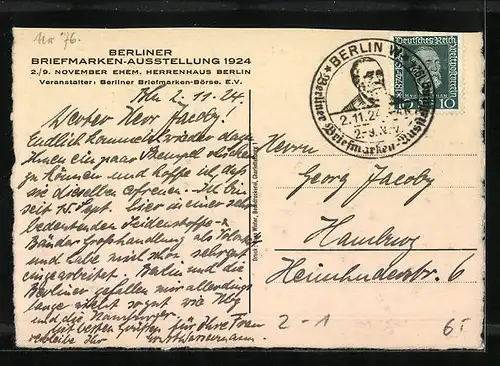 No 76.
BERLINER
BRIEFMARKEN-AUSSTELLUNG 1924
2./9. NOVEMBER EHEM. HERRENHAUS BERLIN
Veranstalter: Berliner Briefmarken-Börse. E.V.
Bln 2.11.24.
Werter Herr Jacoby!
Endlich komme ich wieder dazu
Ihnen ein paar Stempel schicken
zu können und hoffe ich, daß
sie dieselben erfreuen. Ich bin
seit 15. Sept. hier in einer sehr
bedeutenden Seidenstoffe-
Bänder Großhandlung als Volontär
und habe mich schon sehr gut
eingearbeitet. Berlin und die
Berliner gefallen mir allerdings
lange nicht so gut wie Hbg
und die Hamburger.
Mit besten Grüßen für Ihre Frau
verbleibe Ihr
BERLIN W
2.11.24.
2.-9. NOV.
Berliner Briefmarken-Ausstellung
Deutsches Reich
Weltpostverein
10 10
Herrn
Georg Jacoby
Hamburg
Heimhuderstr. 6
2-1
6.-